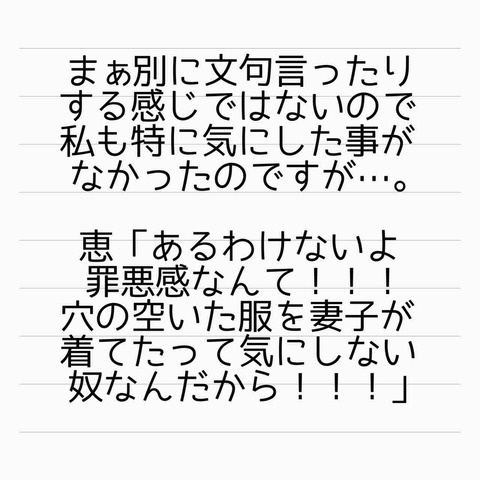 まぁ別に文句言ったり
する感じではないので
私も特に気にした事が
なかったのですが…。
恵「あるわけないよ
罪悪感なんて！！！
穴の空いた服を妻子が
着てたって気にしない
奴なんだから！！！」